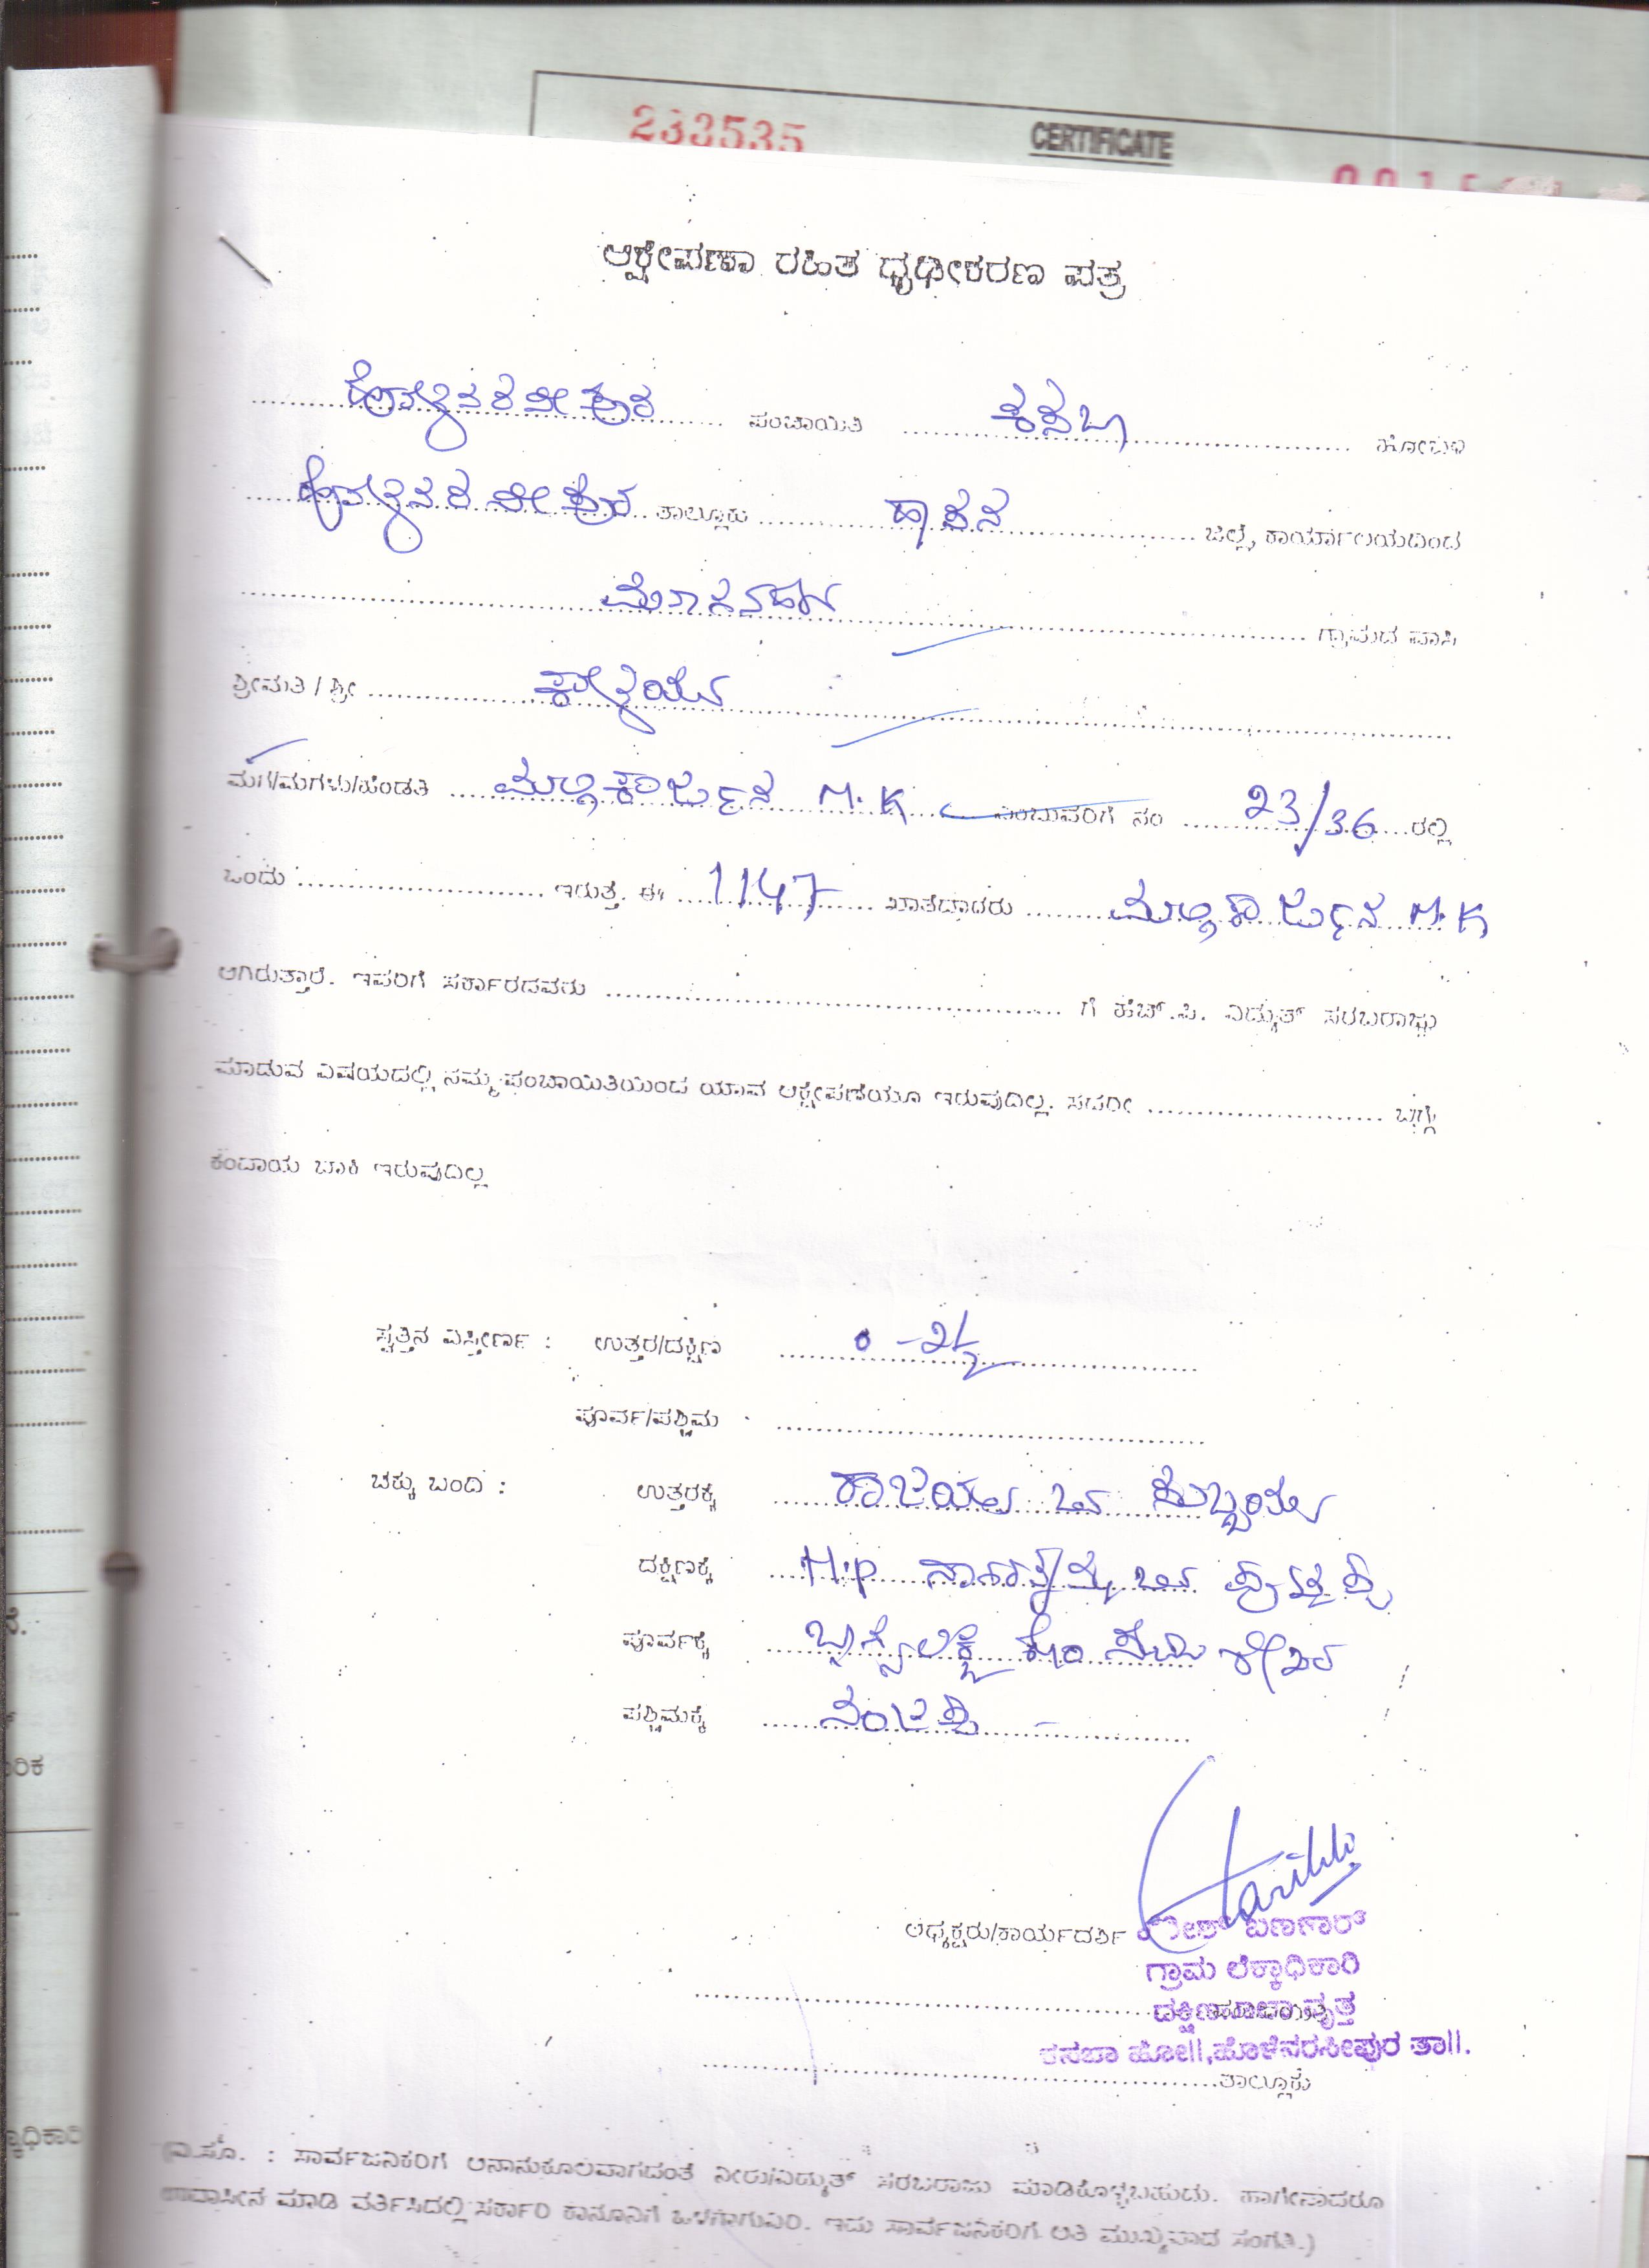 233535
CERTIFICATE
ಆಕ್ಷೇಪಣಾ ರಹಿತ ಧೃಢೀಕರಣ ಪತ್ರ
ಹೊಳೆನರಸೀಪುರ ಪಂಚಾಯಿತಿ ಕಸಬಾ ಹೋಬಳಿ
ಹೊಳೆನರಸೀಪುರ ತಾಲ್ಲೂಕು ಹಾಸನ ಜಿಲ್ಲೆ, ಕಾರ್ಯಾಲಯದಿಂದ
ಗ್ರಾಮದ ವಾಸಿ
ಶ್ರೀಮತಿ / ಶ್ರೀ ಕಾಳಯ್ಯ
ಮಗ/ಮಗಳು/ಹೆಂಡತಿ ಮಲ್ಲಿಕಾರ್ಜುನ M.K ಎಂಬುವರಿಗೆ ನಂ 23/36 ರಲ್ಲಿ
ಒಂದು ಇರುತ್ತೆ. ಈ 1147 ಖಾತೆದಾರರು ಮಲ್ಲಿಕಾರ್ಜುನ M.K
ಆಗಿರುತ್ತಾರೆ. ಇವರಿಗೆ ಸರ್ಕಾರದವರು ಗೆ ಹೆಚ್.ಪಿ. ವಿದ್ಯುತ್ ಸರಬರಾಜು
ಮಾಡುವ ವಿಷಯದಲ್ಲಿ ನಮ್ಮ ಪಂಚಾಯಿತಿಯಿಂದ ಯಾವ ಆಕ್ಷೇಪಣೆಯೂ ಇರುವುದಿಲ್ಲ. ಸದರೀ ಬಗ್ಗೆ
ಕಂದಾಯ ಬಾಕಿ ಇರುವುದಿಲ್ಲ
ಸ್ವತ್ತಿನ ವಿಸ್ತೀರ್ಣ : ಉತ್ತರ/ದಕ್ಷಿಣ
ಪೂರ್ವ/ಪಶ್ಚಿಮ
ಚಕ್ಕು ಬಂದಿ : ಉತ್ತರಕ್ಕೆ ರಾಜಯ್ಯ ಬಿನ್ ಸುಬ್ಬಯ್ಯ
ದಕ್ಷಿಣಕ್ಕೆ H.P
ಪೂರ್ವಕ್ಕೆ
ಪಶ್ಚಿಮಕ್ಕೆ ನಂಜಪ್ಪ
ಅಧ್ಯಕ್ಷರು/ಕಾರ್ಯದರ್ಶಿ ಬಣಗಾರ್
ಗ್ರಾಮ ಲೆಕ್ಕಾಧಿಕಾರಿ
ವೃತ್ತ
ಕಸಬಾ ಹೋ||,ಹೊಳೆನರಸೀಪುರ ತಾ||.
ತಾಲ್ಲೂಕು
(ವಿ.ಸೂ. : ಸಾರ್ವಜನಿಕರಿಗೆ ಅನಾನುಕೂಲವಾಗದಂತೆ ನೀರು/ವಿದ್ಯುತ್ ಸರಬರಾಜು ಮಾಡಿಕೊಳ್ಳಬಹುದು. ಹಾಗೇನಾದರೂ
ಉದಾಸೀನ ಮಾಡಿ ವರ್ತಿಸಿದಲ್ಲಿ ಸರ್ಕಾರಿ ಕಾನೂನಿಗೆ ಒಳಗಾಗುವಿರಿ. ಇದು ಸಾರ್ವಜನಿಕರಿಗೆ ಅತಿ ಮುಖ್ಯವಾದ ಸಂಗತಿ.)